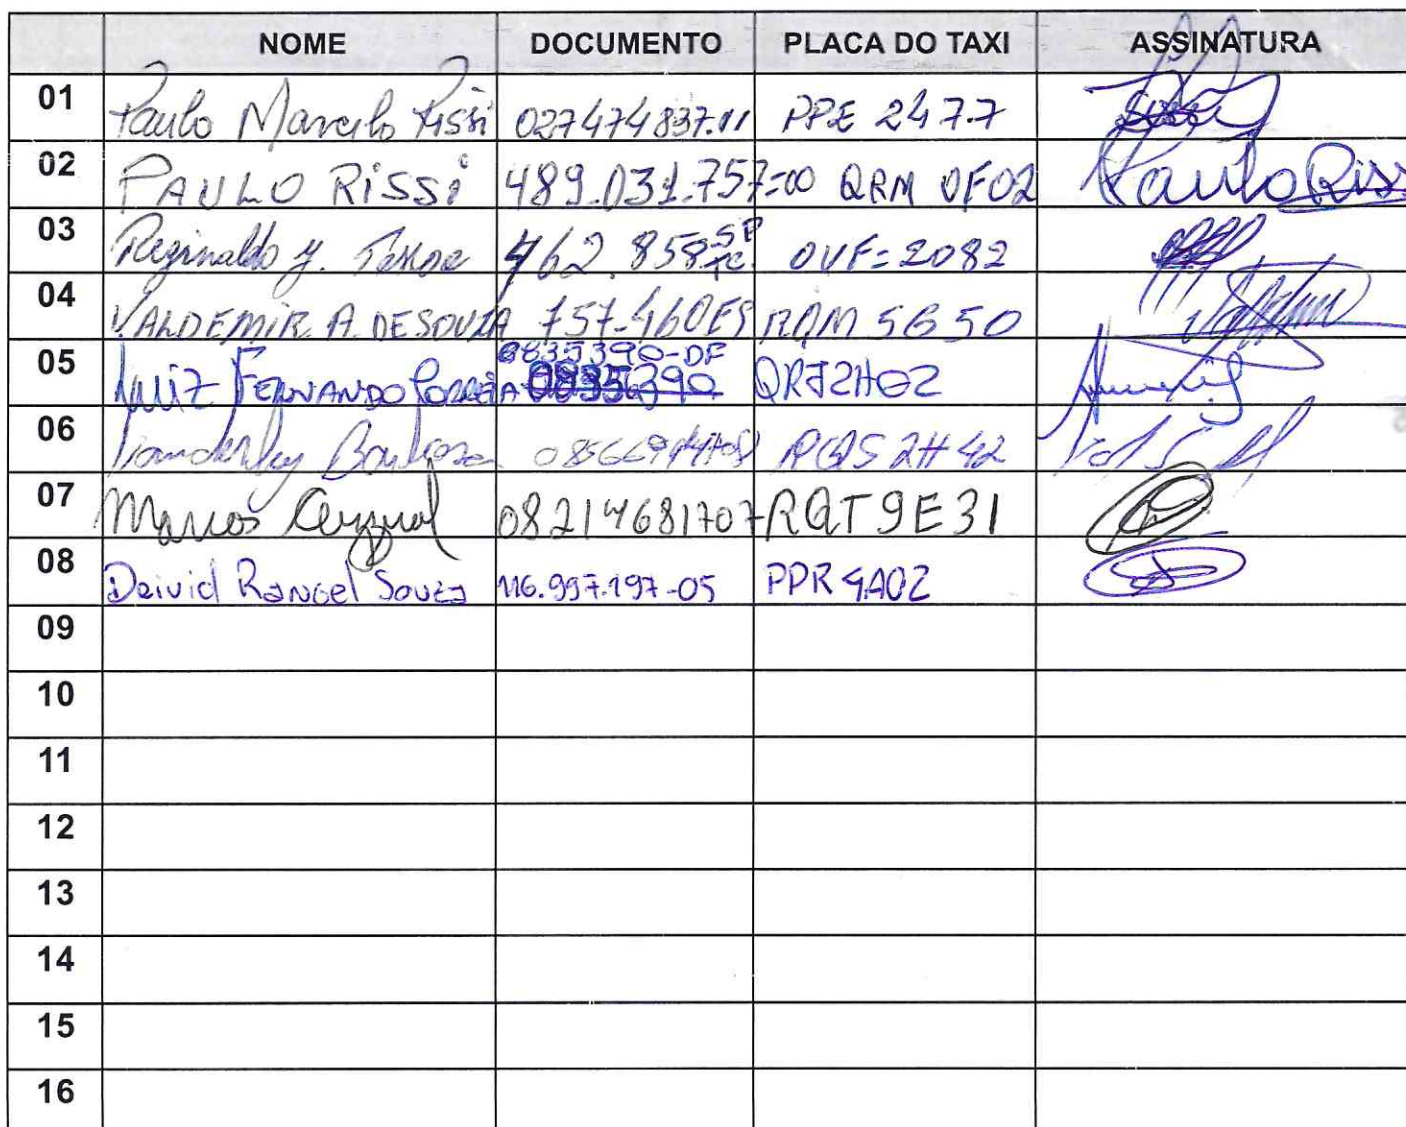 NOME DOCUMENTO PLACA DO TAXI ASSINATURA
01 Paulo Marcelo Rissi 027474837.11 PPE 2477
02 PAULO RISSI 489.031.757-00 QRM 0F02 Paulo Riss
03 Reginaldo 462.858 SP OVF-2082
04 VALDEMIR A. DE SOUZA 757-460ES RQM 5G50
05 LUIZ FERNANDO CORREIA 0835390-DF QRJ2H02
06 Vanderley Barbosa
07 Marcos 08214681707 RQT9E31
08 Deivid Rangel Souza 116.997.197-05 PPR 4A02
09
10
11
12
13
14
15
16